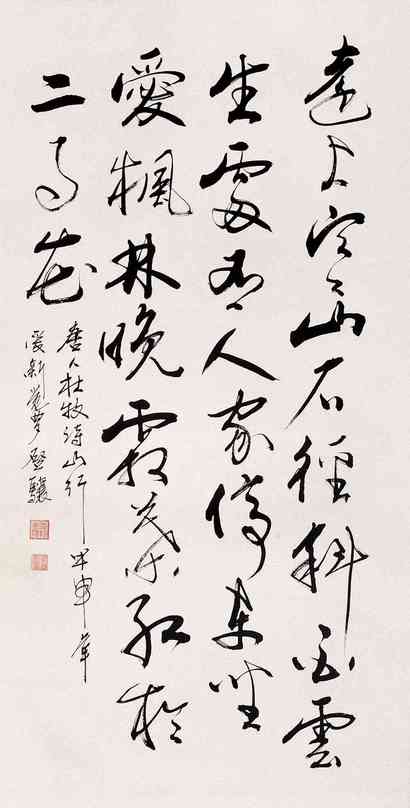 遠上寒山石徑斜白雲
生處有人家停車坐
愛楓林晚霜葉紅於
二月花
唐人杜牧詩山行 甲申年
愛新覺羅啓驤